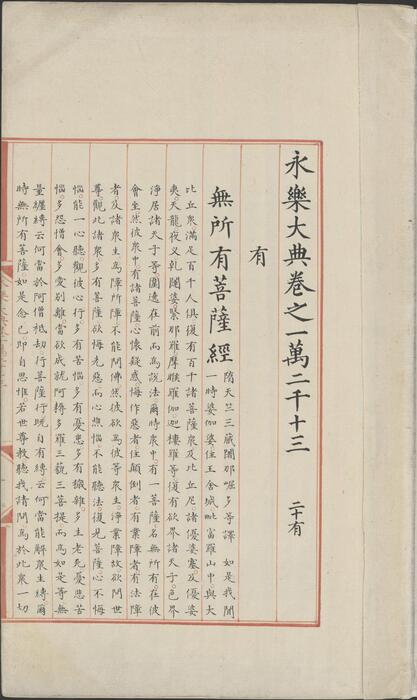 永樂大典卷之一萬二千十三 二十有
有
無所有菩薩經 隋天竺三藏闍那崛多等譯 如是我聞
一時婆伽婆住王舍城毗富羅山中與大
比丘衆滿足百千人俱復有百千諸菩薩衆及比丘尼諸優婆塞及優婆
夷天龍夜叉乾闥婆緊那羅摩睺羅伽迦樓羅等復有欲界諸天子色界
淨居諸天子等圍遶在前而爲說法爾時衆中有一菩薩名無所有在彼
會坐然彼衆中有諸菩薩心懷疑惑悔作惡者住顛倒者有業障者有法障
者及諸衆生爲障所障不能問佛然彼欲爲彼等衆生淨業障故欲問世
尊觀此諸衆多有菩薩欲悔先惡而心燋惱不能聽法復見菩薩心不悔
惱能一心聽觀彼心行多有苦惱多有憂患多有擾雜多生老死憂悲苦
惱多怨憎會多愛別離當欲成就阿耨多羅三藐三菩提而爲如是等無
量纏縛云何當於阿僧祇劫行菩薩行旣自有縛云何當能解衆生縛爾
時無所有菩薩如是念已卽自思惟若世尊教聽我請問爲於此衆一切